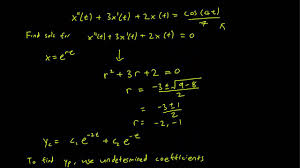 x''(t) + 3x'(t) + 2x(t) = cos(6t)
Find solns for x''(t) + 3x'(t) + 2x(t) = 0
r² + 3r + 2 = 0
r = -3±√9-8 / 2
= -3±1 / 2
r = -2, -1
y_c = c₁e^-2t + c₂e^-t
To find y_p, use undetermined coefficients